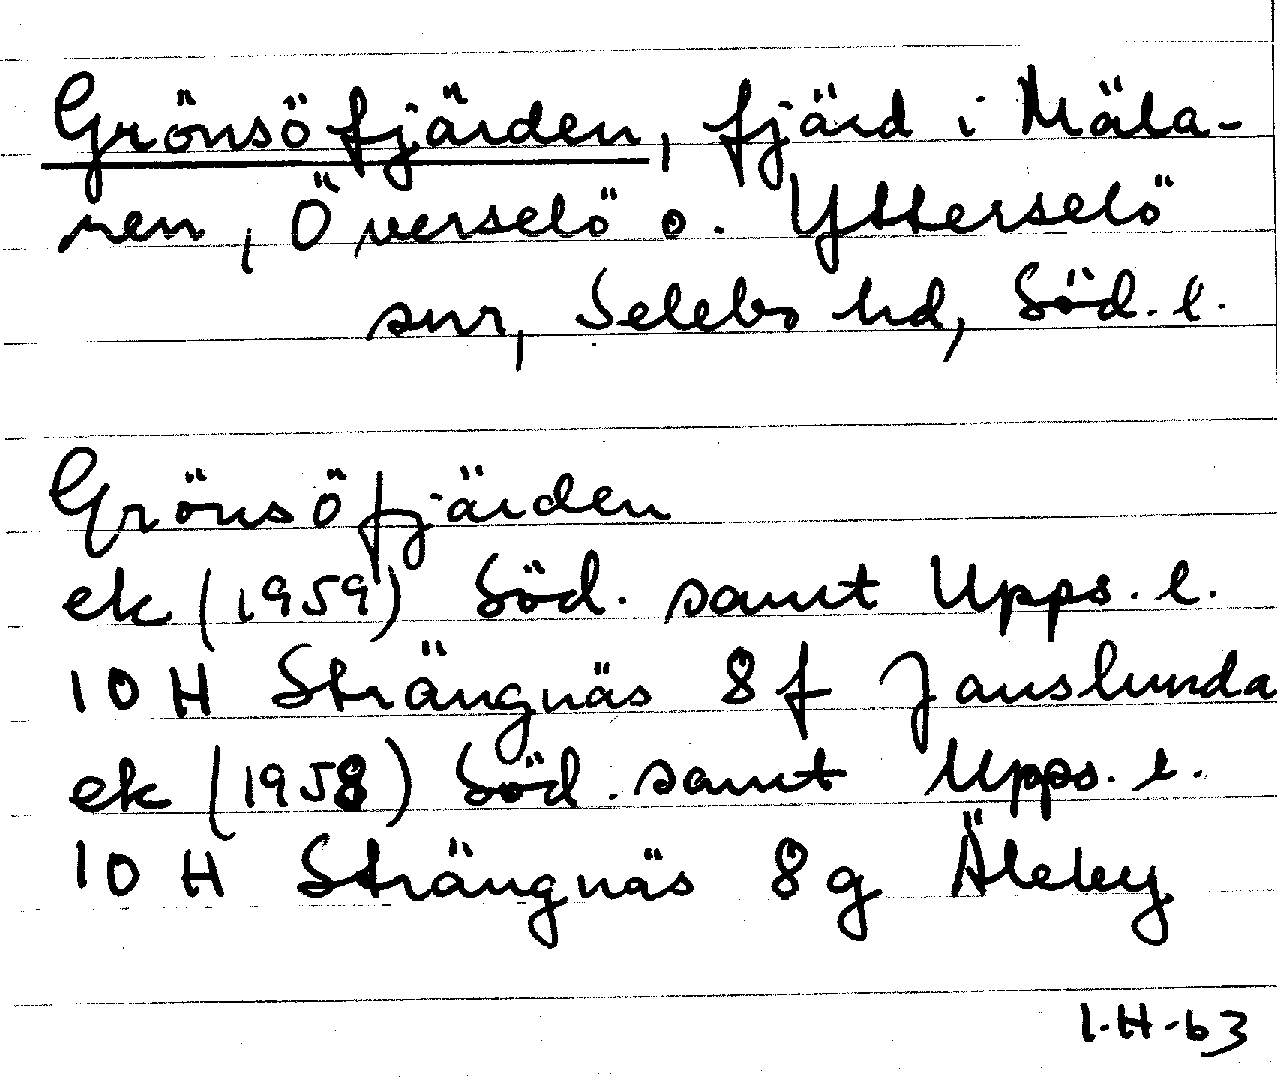 Grönsöfjärden, fjärd i Mäla-
ren, Överselö o. Ytterselö
snr, Selebo hd, Söd. l.
Grönsöfjärden
ek (1959) Söd. samt Upps. l.
10 H Strängnäs 8 f Janslunda
ek (1958) Söd. samt Upps. l.
10 H Strängnäs 8 g Äleby
I.H-63